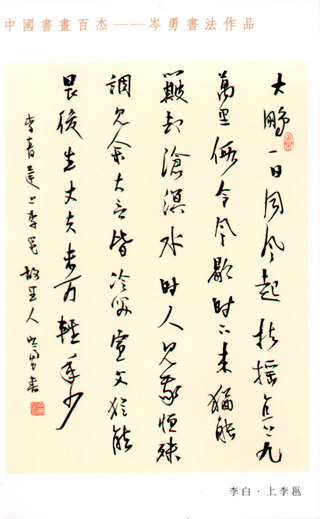 中國書畫百杰——岑勇書法作品
大鵬一日同风起扶摇直上九
萬里假令风歇时下来猶能
簸却滄溟水时人見我恒殊
調見余大言皆冷笑宣父猶能
畏後生丈夫未可輕年少
李青蓮上李邕 故里人岑勇書
李白·上李邕